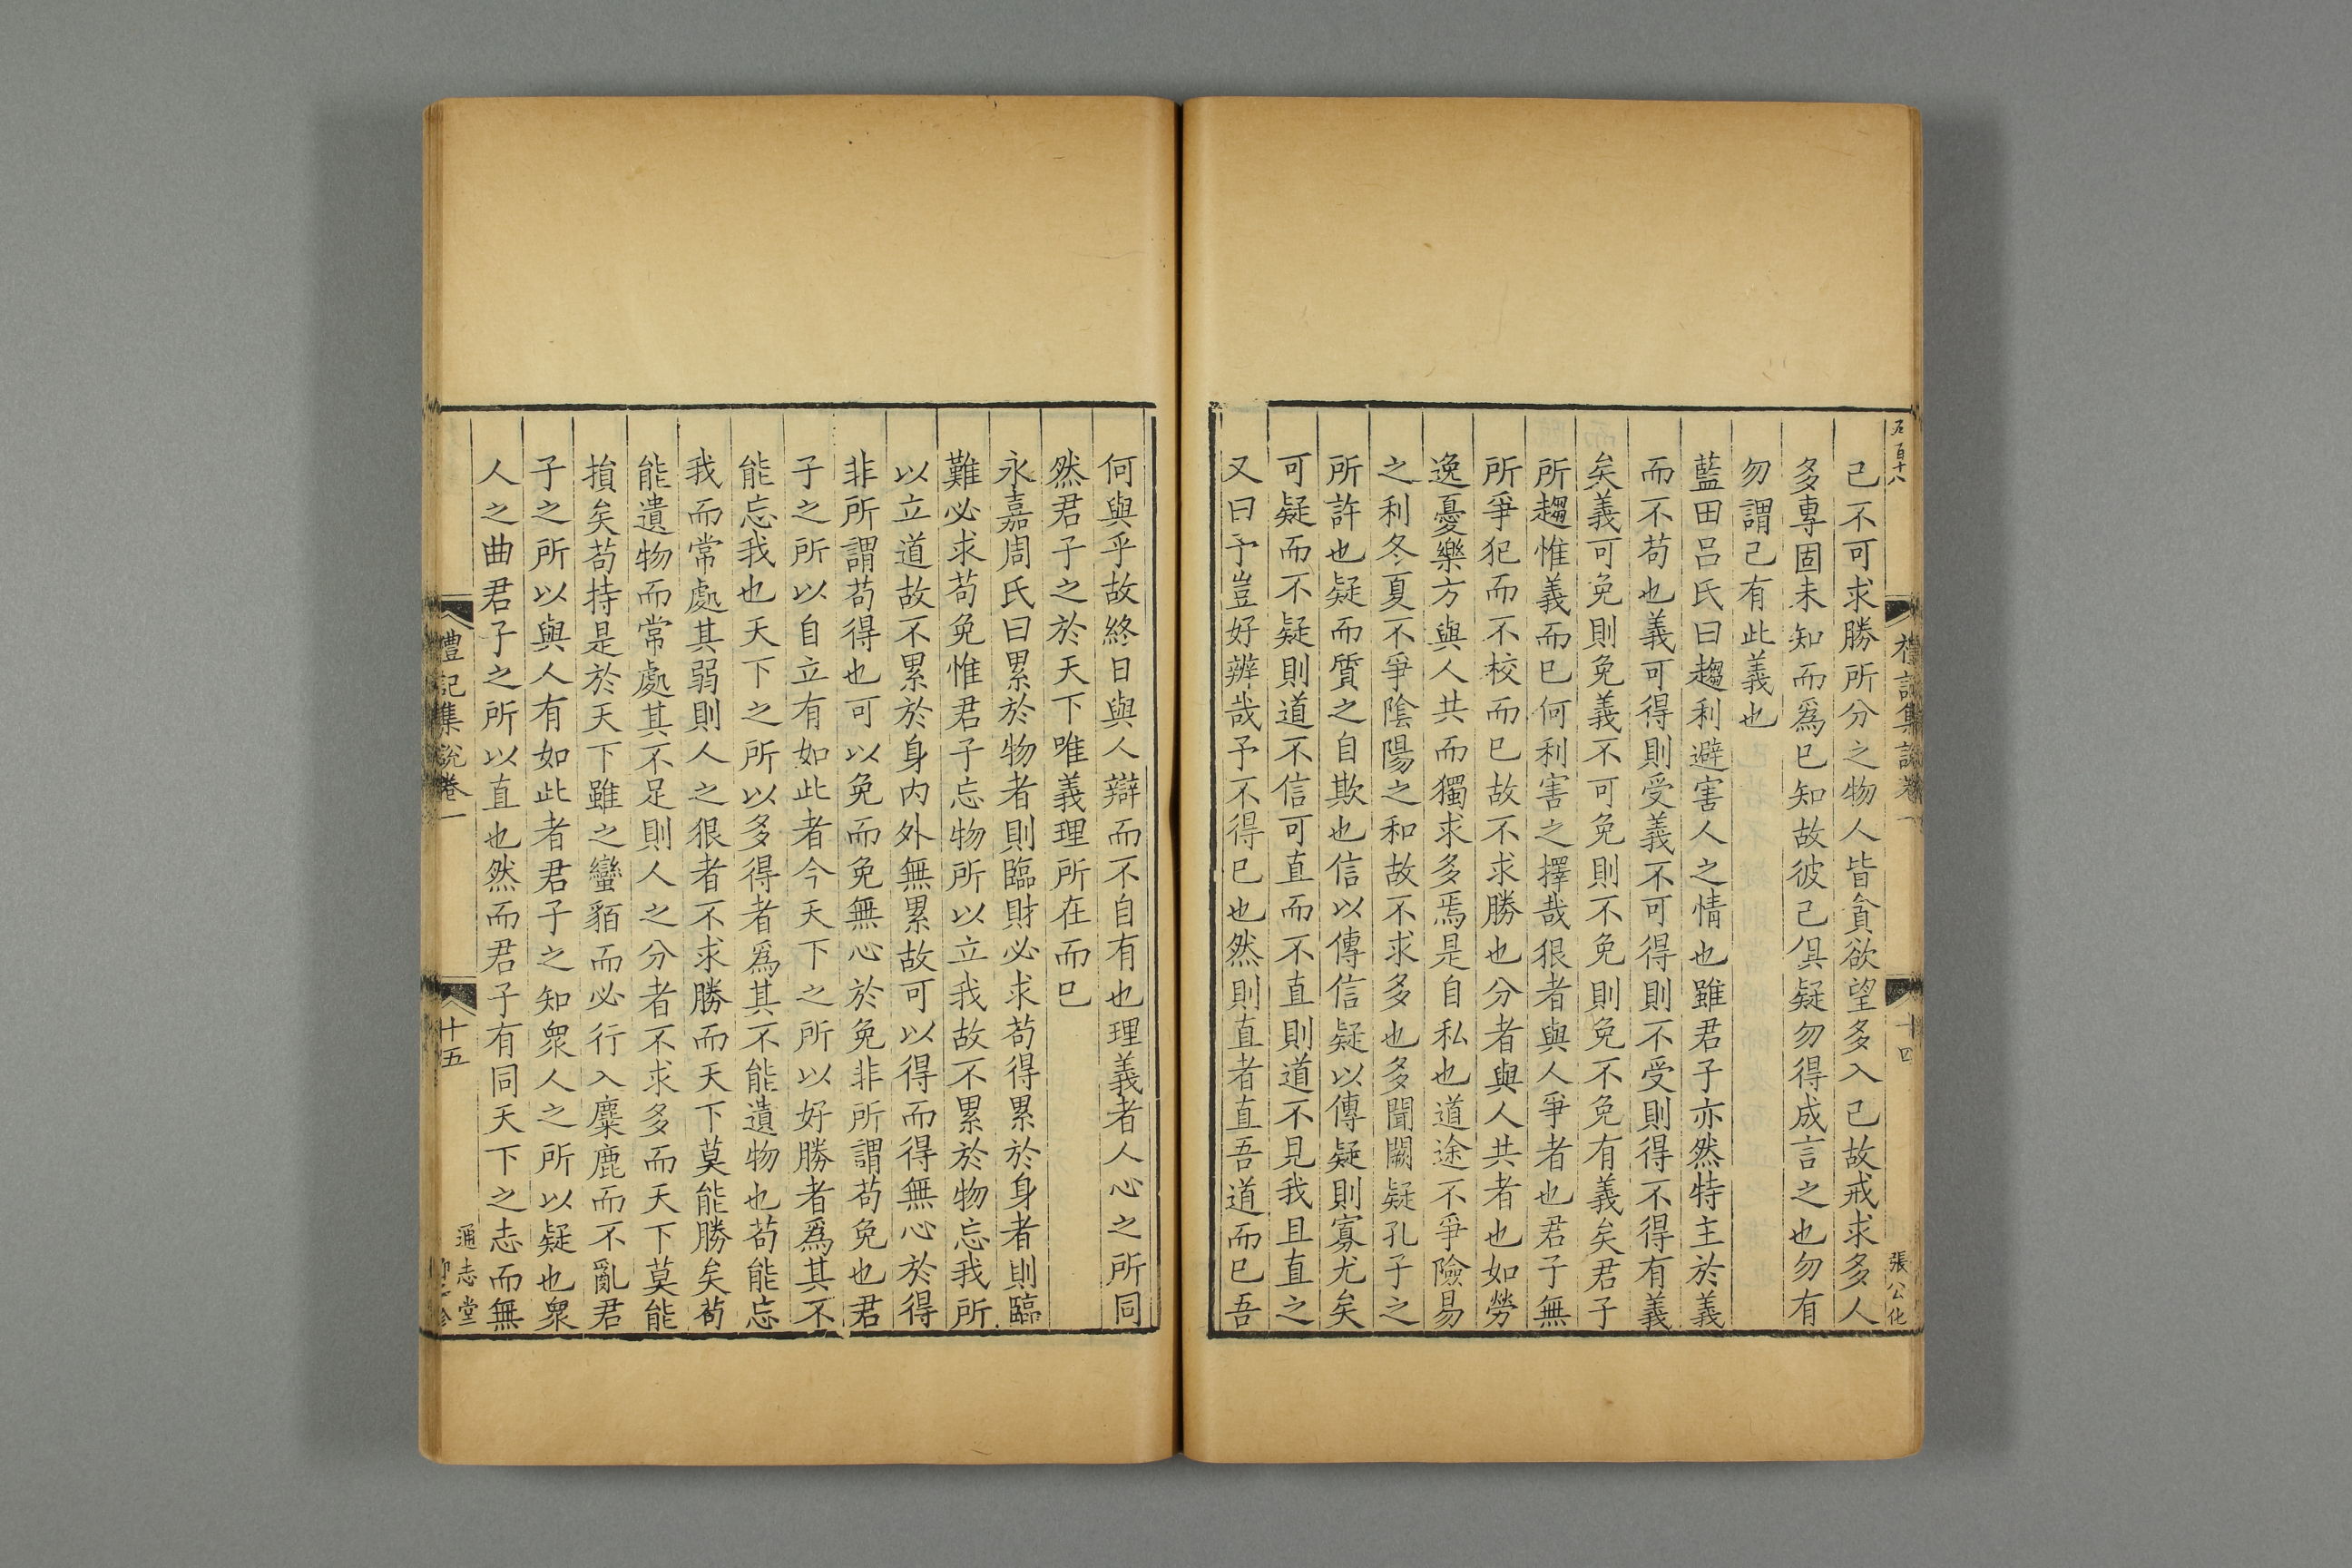 禮記集說卷一
十四
張公化
己不可求勝所分之物人皆貪欲望多入己故戒求多人
多專固未知而爲已知故彼己俱疑勿得成言之也勿有
勿謂己有此義也
藍田呂氏曰趨利避害人之情也雖君子亦然特主於義
而不苟也義可得則受義不可得則不受則得不得有義
矣義可免則免義不可免則不免則免不免有義矣君子
所趨惟義而已何利害之擇哉狠者與人爭者也君子無
所爭犯而不校而已故不求勝也分者與人共者也如勞
逸憂樂方與人共而獨求多焉是自私也道途不爭險易
之利冬夏不爭陰陽之和故不求多也多聞闕疑孔子之
所許也疑而質之自欺也信以傳信疑以傳疑則寡尤矣
可疑而不疑則道不信可直而不直則道不見我且直之
又曰予豈好辨哉予不得已也然則直者直吾道而已吾
何與乎故終日與人辯而不自有也理義者人心之所同
然君子之於天下唯義理所在而已
永嘉周氏曰累於物者則臨財必求苟得累於身者則臨
難必求苟免惟君子忘物所以立我故不累於物忘我所
以立道故不累於身內外無累故可以得而得無心於得
非所謂苟得也可以免而免無心於免非所謂苟免也君
子之所以自立有如此者今天下之所以好勝者爲其不
能忘我也天下之所以多得者爲其不能遺物也苟能忘
我而常處其弱則人之狠者不求勝而天下莫能勝矣苟
能遺物而常處其不足則人之分者不求多而天下莫能
損矣苟持是於天下雖之蠻貊而必行入麋鹿而不亂君
子之所以與人有如此者君子之知衆人之所以疑也衆
人之曲君子之所以直也然而君子有同天下之志而無
禮記集說卷一
十五
通志堂